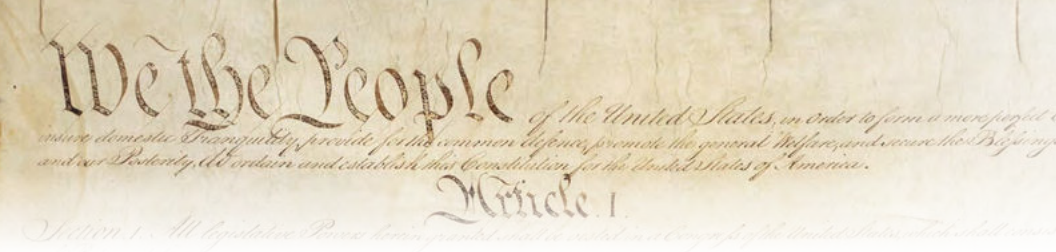 We the People of the United States, in order to form a more perfect
insure domestic Tranquility, provide for the common defence, promote the general Welfare, and secure the Blessings
and our Posterity, do ordain and establish this Constitution for the United States of America.
Article. I.
Section 1. All legislative Powers herein granted shall be vested in a Congress of the United States, which shall